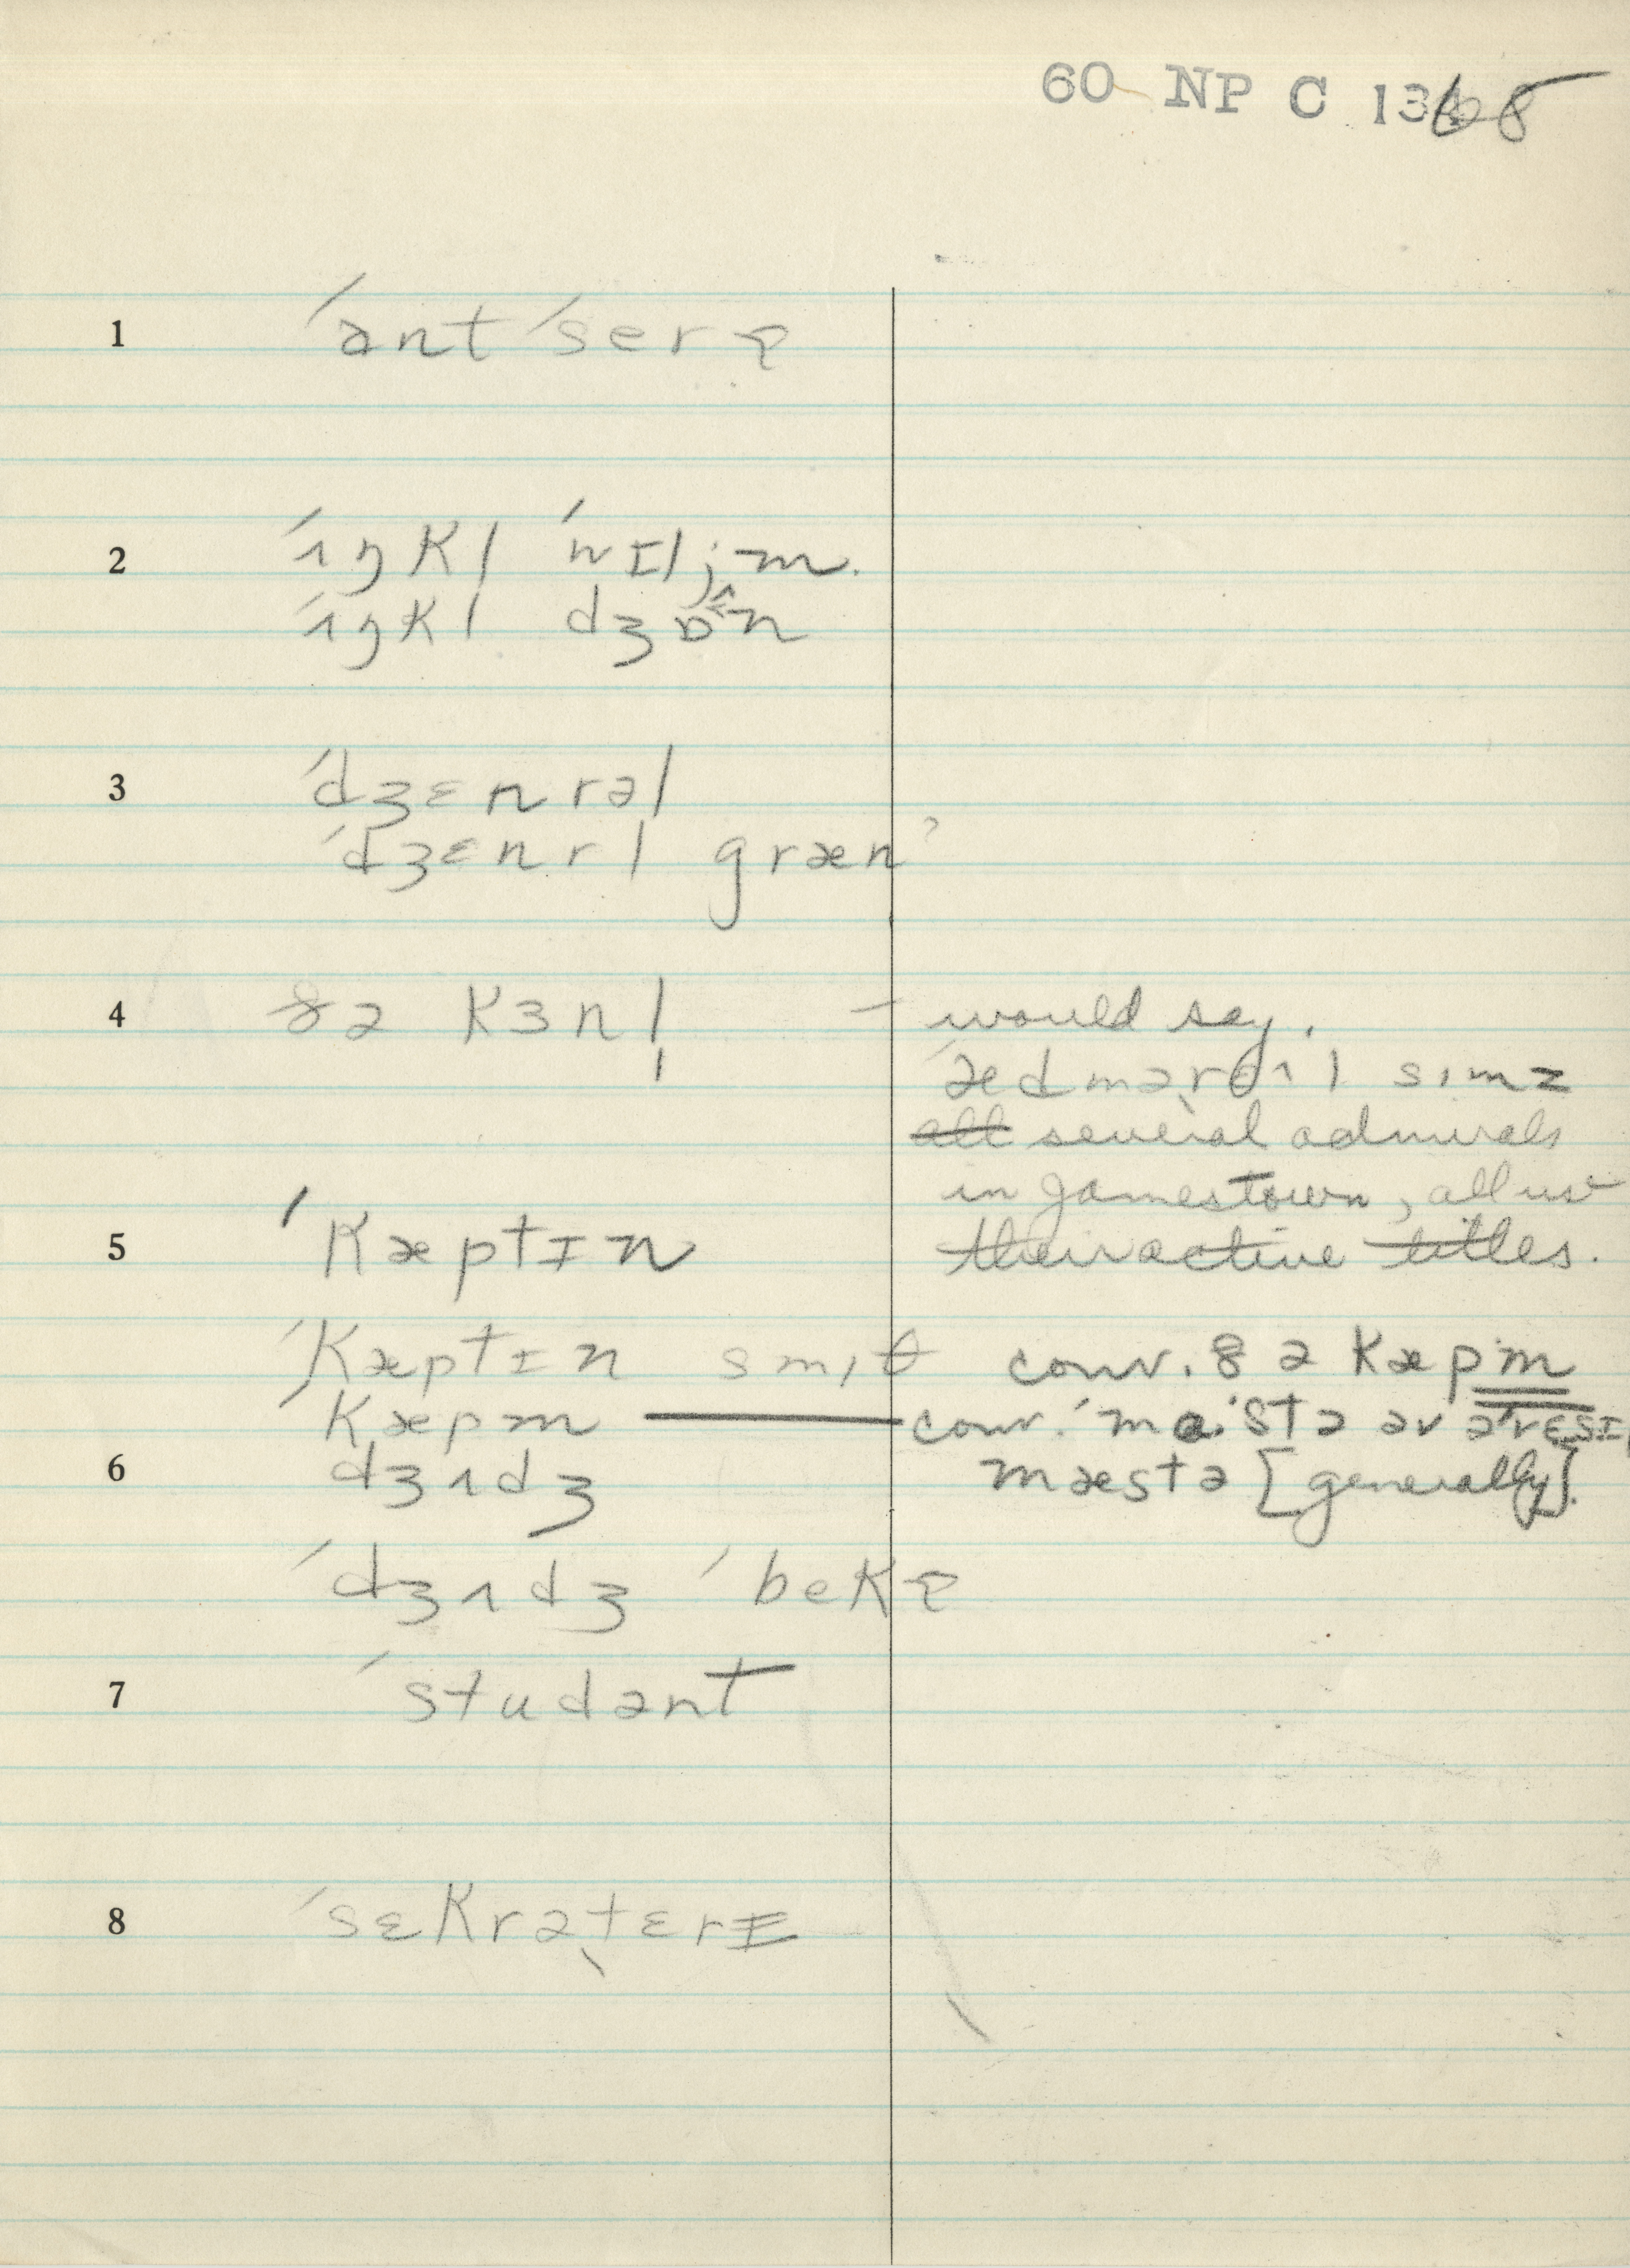 60 NP C 1368
1 ˈant ˈserɚ
2 ˈʌŋkl ˈwɪljm.
ˈʌŋkl dʒɒˆn
3 ˈdʒɛnrəl
ˈdʒɛnrl græn?
4 ðə kɜnl̩ – would say.
ˈædmərəl simz
all several admirals
in Jamestown, all use
5 ˈkæptɪn their active titles.
ˈkæptɪn smiθ conv. ðə kæpm
ˈkæpm — conv. ˈma:stə əv əˈresɪ
6 dʒʌdʒ mæstə [generally].
ˈdʒʌdʒ ˈbekɚ
7 ˈstudənt
8 ˈsɛkrəˌtɛrɪ